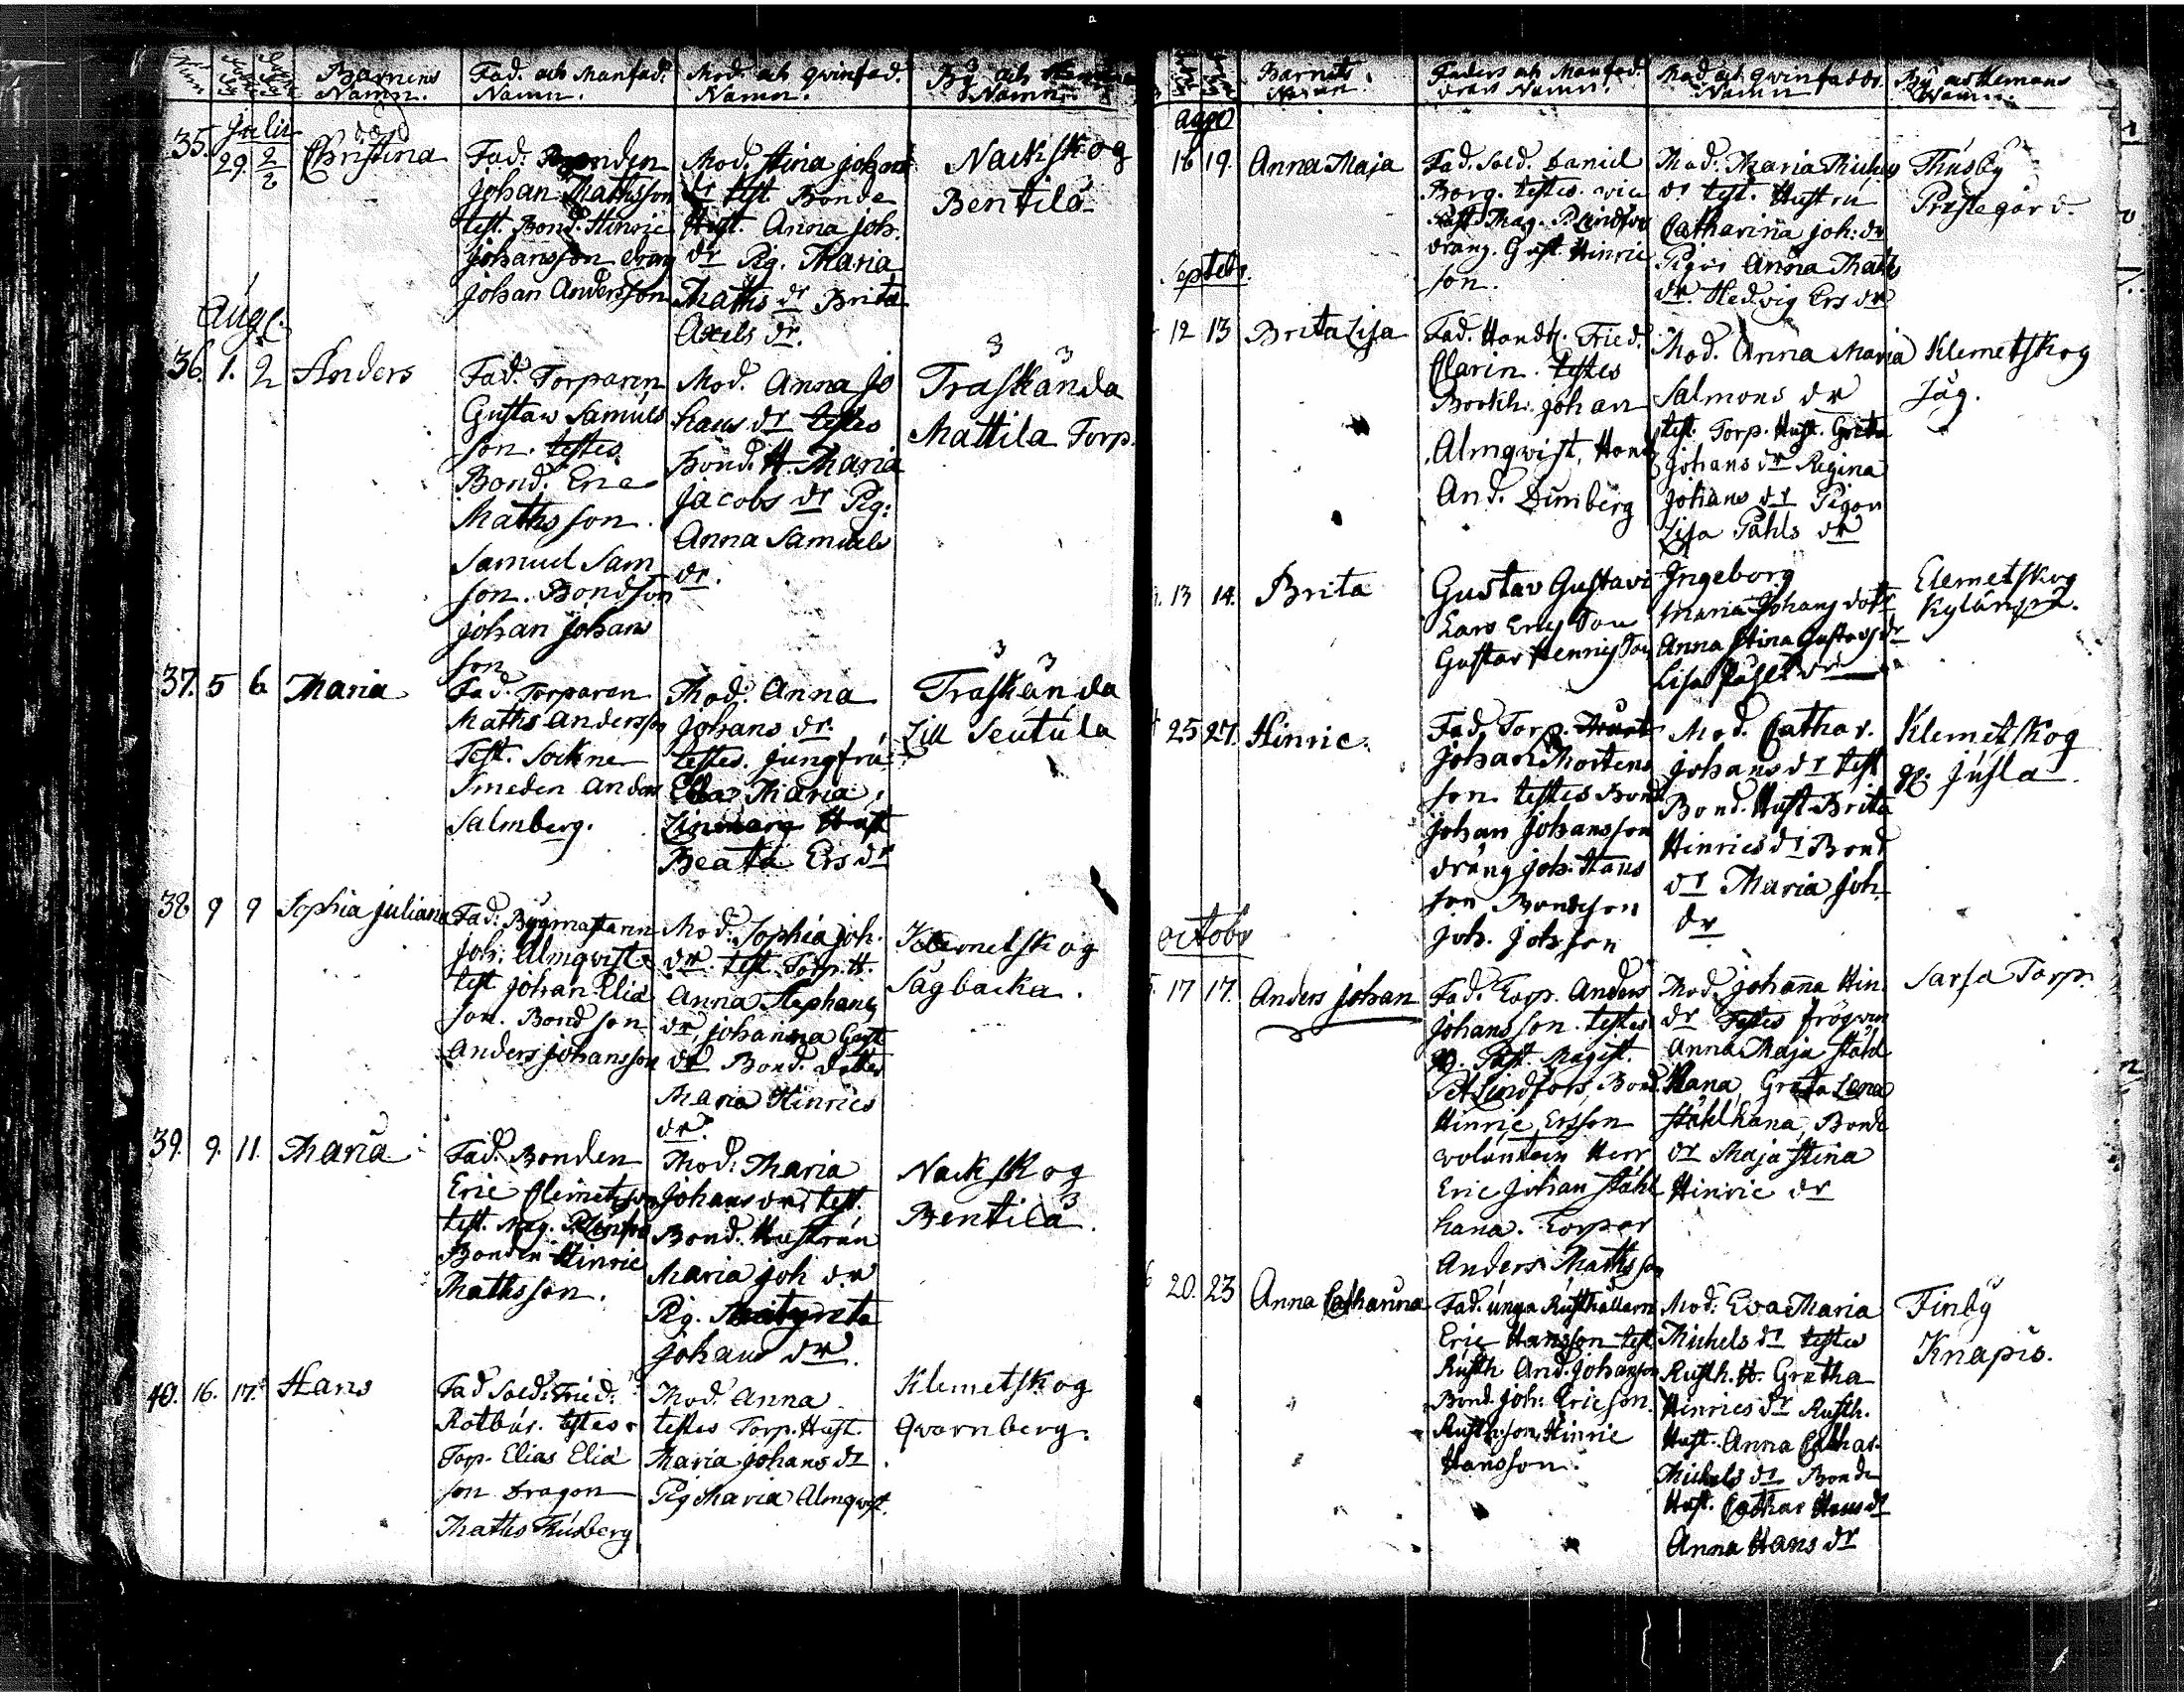 Barnens Namn.
Fad. och Manfad. Namn.
Mod. och qvinfad. Namn.
By och
Namn.
Julii
35. 29. 2/2 Christina
Fad. Bonden
Johan Mathsson
test. Bond. Hinric
Johansson drang
Johan Andersson
Mod. Stina Johans
dr test Bonde
Hust. Anna Joh.
dr Pig. Maria
Maths dr Brita
Axels dr.
Nackskog
Bentilä
Aug.
36. 1. 2 Anders
Fad. Torparen
Gustaw Samuls
son. testes
Bond. Eric
Mathsson.
Samuel Sam
son. Bondson
Johan Johans
son
Mod. Anna Jo
hans dr testes
Bond. H. Maria
Jacobs dr Pig:
Anna Samuels
dr.
Träskända
Mattila Torp.
37. 5 6 Maria
Fad. Torparen
Maths Andersson
Test. Sockne
Smeden Anders
Salmberg.
Mod. Anna
Johans dr.
testes. Jungfru
Ebba Maria
Hust
Beata Ers dr
Träskända
Lill Seutula
38 9 9 Sophia Juliana
Fad. Bygmästaren
Joh: Almqvist
test Johan Elia
son. Bondson
Anders Johansson
Mod. Sophia Joh.
dr. test. Torp. H.
Anna Stephans
dr, Johanna Gust
dr Bond. dotter
Maria Hinrics
dr.
Klemetskog
Sågbacka.
39. 9. 11. Maria
Fad. Bonden
Eric Clemetsson
test. Mag.
Bonden Hinric
Mathsson.
Mod. Maria
Johans dr test.
Bond. Hustrun
Maria Joh dr
Pig.
Johans dr.
Nackskog
Bentilä.
40. 16. 17. Hans
Fad Sold. Fried.
Rotbur. testes
Torp. Elias Elia
son Dragon
Maths Thusberg
Mod. Anna
testes Torp. Hust.
Maria Johans dr
Pig Maria Almqvist.
Klemetskog
Qvarnberg.
Barnets Namn.
Faders och Manfad.
drars Namn.
Mod. och qwinfaddr.
Namn
By och Hemans
Namn.
Aug
16 19. Anna Maja
Fad. Sold. Daniel
Borg. testes. vice
Past. Mag. P. Lindfors
dräng. Gust. Hinric
son.
Mod: Maria Michels
dr test. Hustru
Catharina Joh: dr
Pigor Anna Maths
dr Hedvig Ers dr
Thusby
Prästegård.
Septebr.
12 13 Brita Lisa
Fad. Handtl. Fried.
Clarin. testes
Bockh. Johan
Almqwist, Handtl
And. Dunberg
Mod. Anna Maria
Salmons dr
test. Torp. Hust. Greta
Johans dr Regina
Johans dr Pigan
Lisa Påhls dr
Klemetskog
Såg.
13 14. Brita
Gustav Gustavi
Lars Ericsson
Gustav Hennigson
Ingeborg
Maria Johans dottr
Anna Stina Gustavs dr
Lisa Påhls dr
Clemetskog
Kylänpä.
25 27. Hinric.
Fad. Torp.
Johan Mortens
son testes Bond
Johan Johansson
dräng Joh. Hans
son Bondeson
Joh. Johsson
Mod. Cathar.
Johans dr test
Bond. Hust Brita
Hinrics dr Bond
dr Maria Joh.
dr
Klemetskog
Jusla
Octobr
17 17. Anders Johan
Fad. Torp. Anders
Johansson. testes
Past. Magist.
Pet. Lindfors, Bond.
Hinric Ersson
Volontain Herr
Eric Johan Stål
hana. Torpar
Anders Mathsson
Mod. Johanna Hin.
dr Testes Frögven
Anna Maja Stål
Hana, Greta Lena
Stålhana, Bonde
dr Maja Stina
Hinric dr
Sarsa Torp.
20. 23 Anna Catharina
Fad. unga Rusthållarn
Eric Hansson test
Rusth. And. Johansson
Bond. Joh: Ericson.
Rusth. son. Hinric
Hansson.
Mod: Eva Maria
Michels dr testes
Rusth. H. Gretha
Hinrics dr Rusth.
Hust. Anna Cathar.
Michels dr Bonde
Hust. Cathar Hans dr
Anna Hans dr
Finby
Knapis.